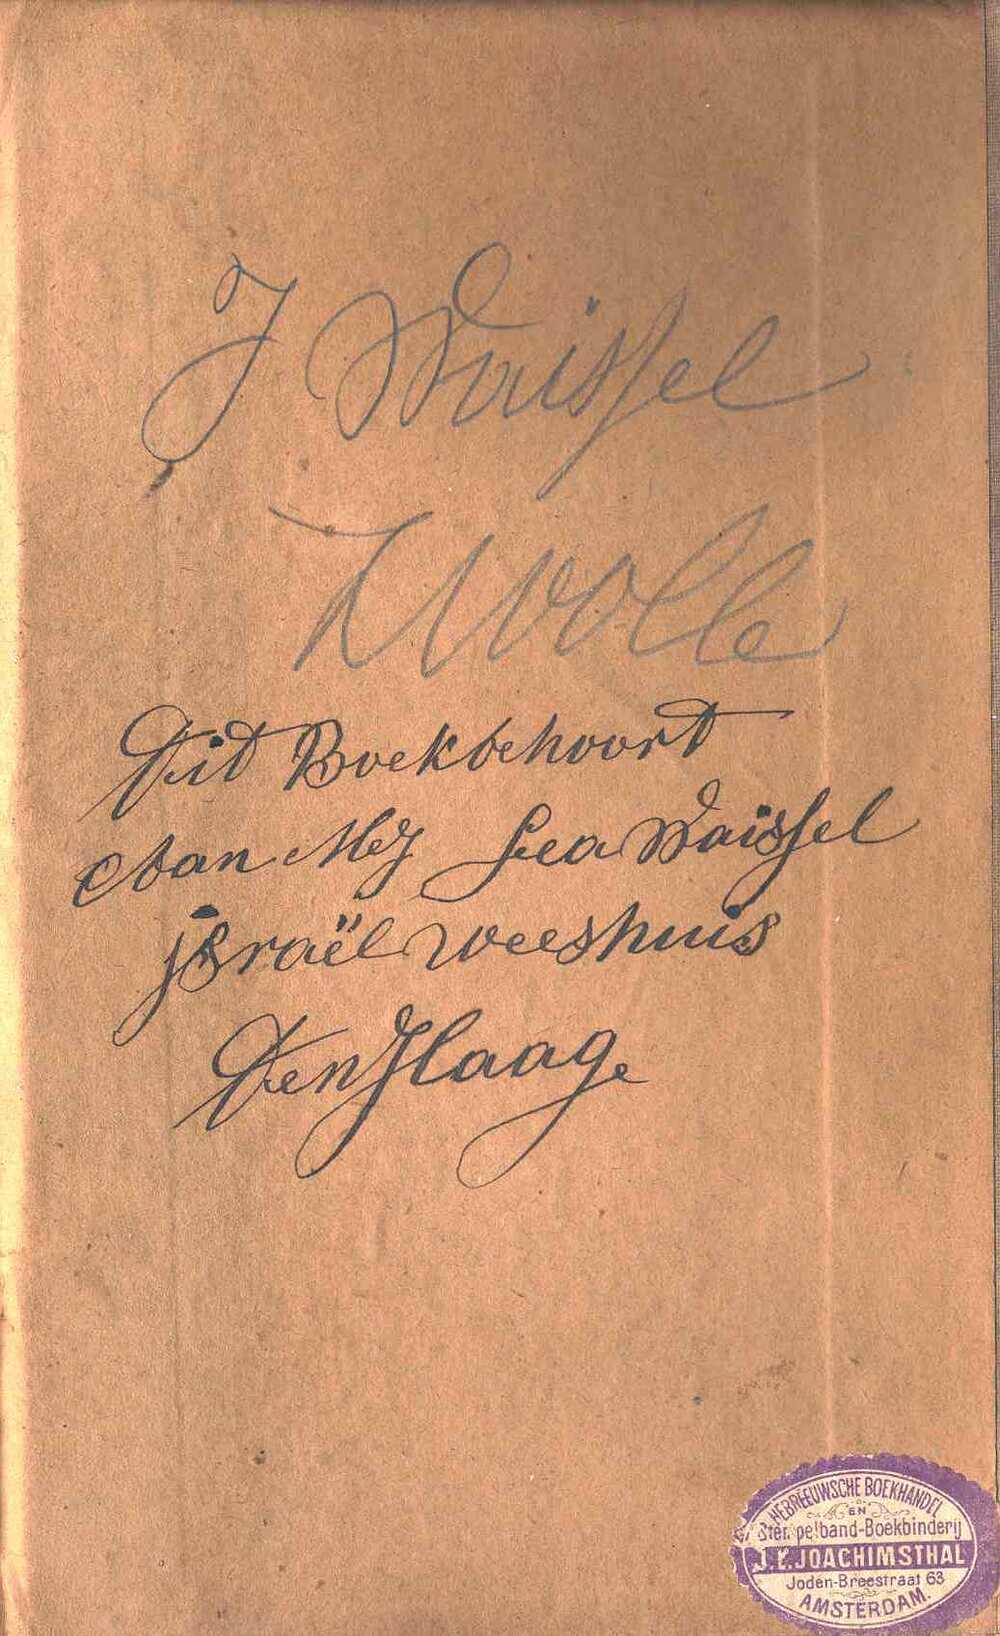 J Waissel
Zwolle
Dit Boek behoort
Aan Mej Lea Waissel
israël weeshuis
Den Haag
HEBREEUWSCHE BOEKHANDEL
EN
Stempelband-Boekbinderij
J.L.JOACHIMSTHAL
Joden-Breestraat 63
AMSTERDAM.